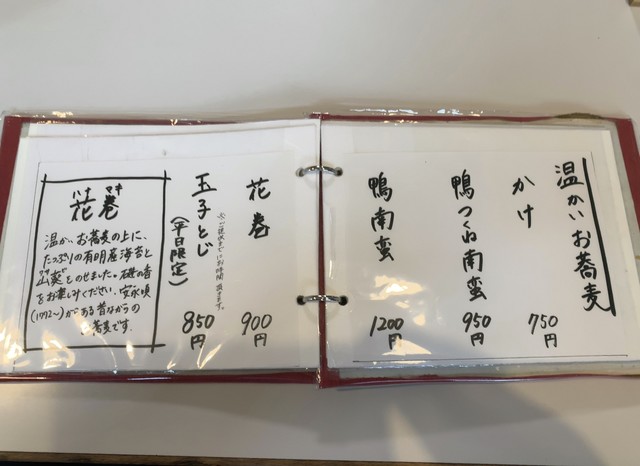 温かいお蕎麦
かけ
750円
鴨つくね南蛮
950円
鴨南蛮
1200円
花巻
900円
玉子とじ
(平日限定)
850円
ハナ マキ
花巻
温かいお蕎麦の上に、
たっぷりの有明産海苔と
山葵をのせました。磯の香
をお楽しみください。安永頃
(1772〜)がある昔ながらの
お蕎麦です。